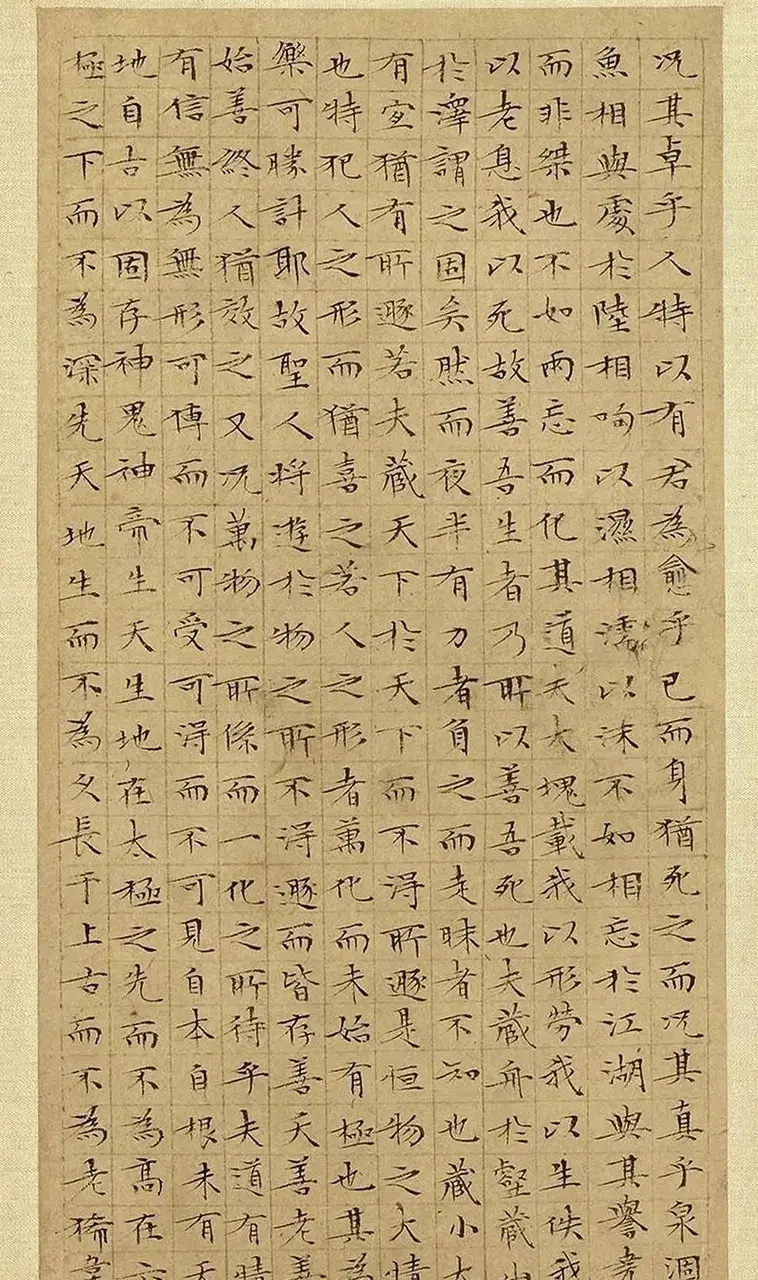 况其卓乎人特以有君為愈乎已而身猶死之而况其真乎泉涸
魚相與處於陸相呴以濕相濡以沫不如相忘於江湖與其譽堯
而非桀也不如兩忘而化其道夫大塊載我以形勞我以生佚我
以老息我以死故善吾生者乃所以善吾死也夫藏舟於壑藏山
於澤謂之固矣然而夜半有力者負之而走昧者不知也藏小大
有宜猶有所遯若夫藏天下於天下而不得所遯是恒物之大情
也特犯人之形而猶喜之若人之形者萬化而未始有極也其為
樂可勝計耶故聖人將遊於物之所不得遯而皆存善夭善老善
始善終人猶效之又况萬物之所係而一化之所待乎夫道有情
有信無為無形可傳而不可受可得而不可見自本自根未有天
地自古以固存神鬼神帝生天生地在太極之先而不為高在六
極之下而不為深先天地生而不為久長于上古而不為老狶韋